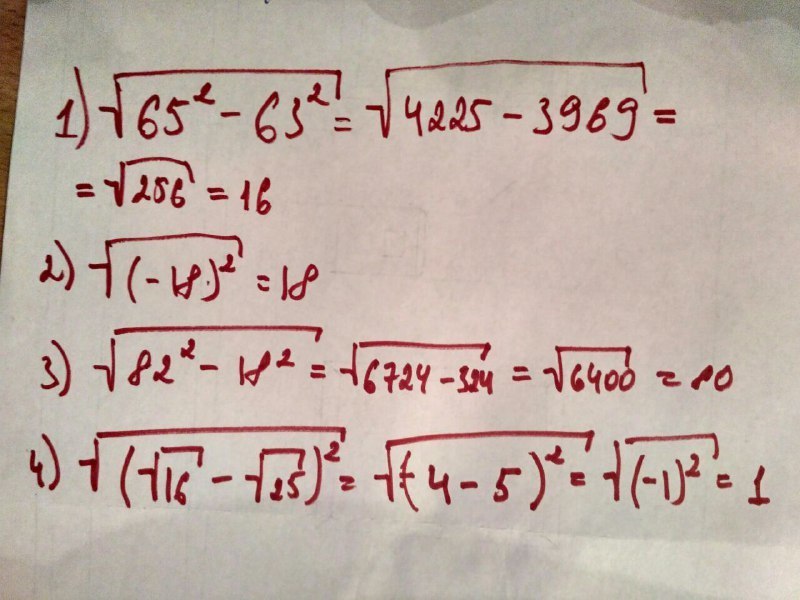 1) √(65² - 63²) = √(4225 - 3969) =
= √256 = 16
2) √((-18)²) = 18
3) √(82² - 18²) = √(6724 - 324) = √6400 = 80
4) √((√16 - √25)²) = √((4 - 5)²) = √((-1)²) = 1